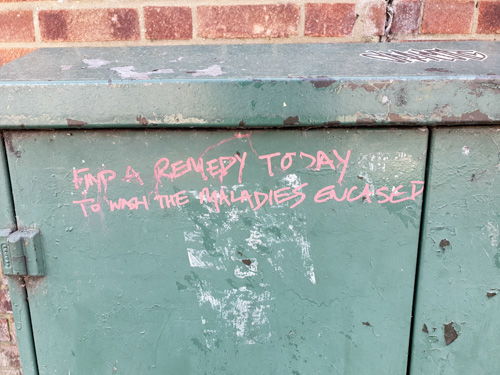 FIND A REMEDY TODAY
TO WASH THE MALADIES ENCASED